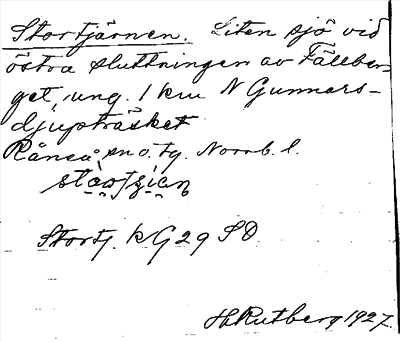 Stortjärnen. Liten sjö vid
östra sluttningen av Fällber-
get, ung. 1 km N Gunnars-
djupträsket
Råneå sn o. tg. Norrb. l.
Stortj. k G 29 SO
H. Rutberg 1927.